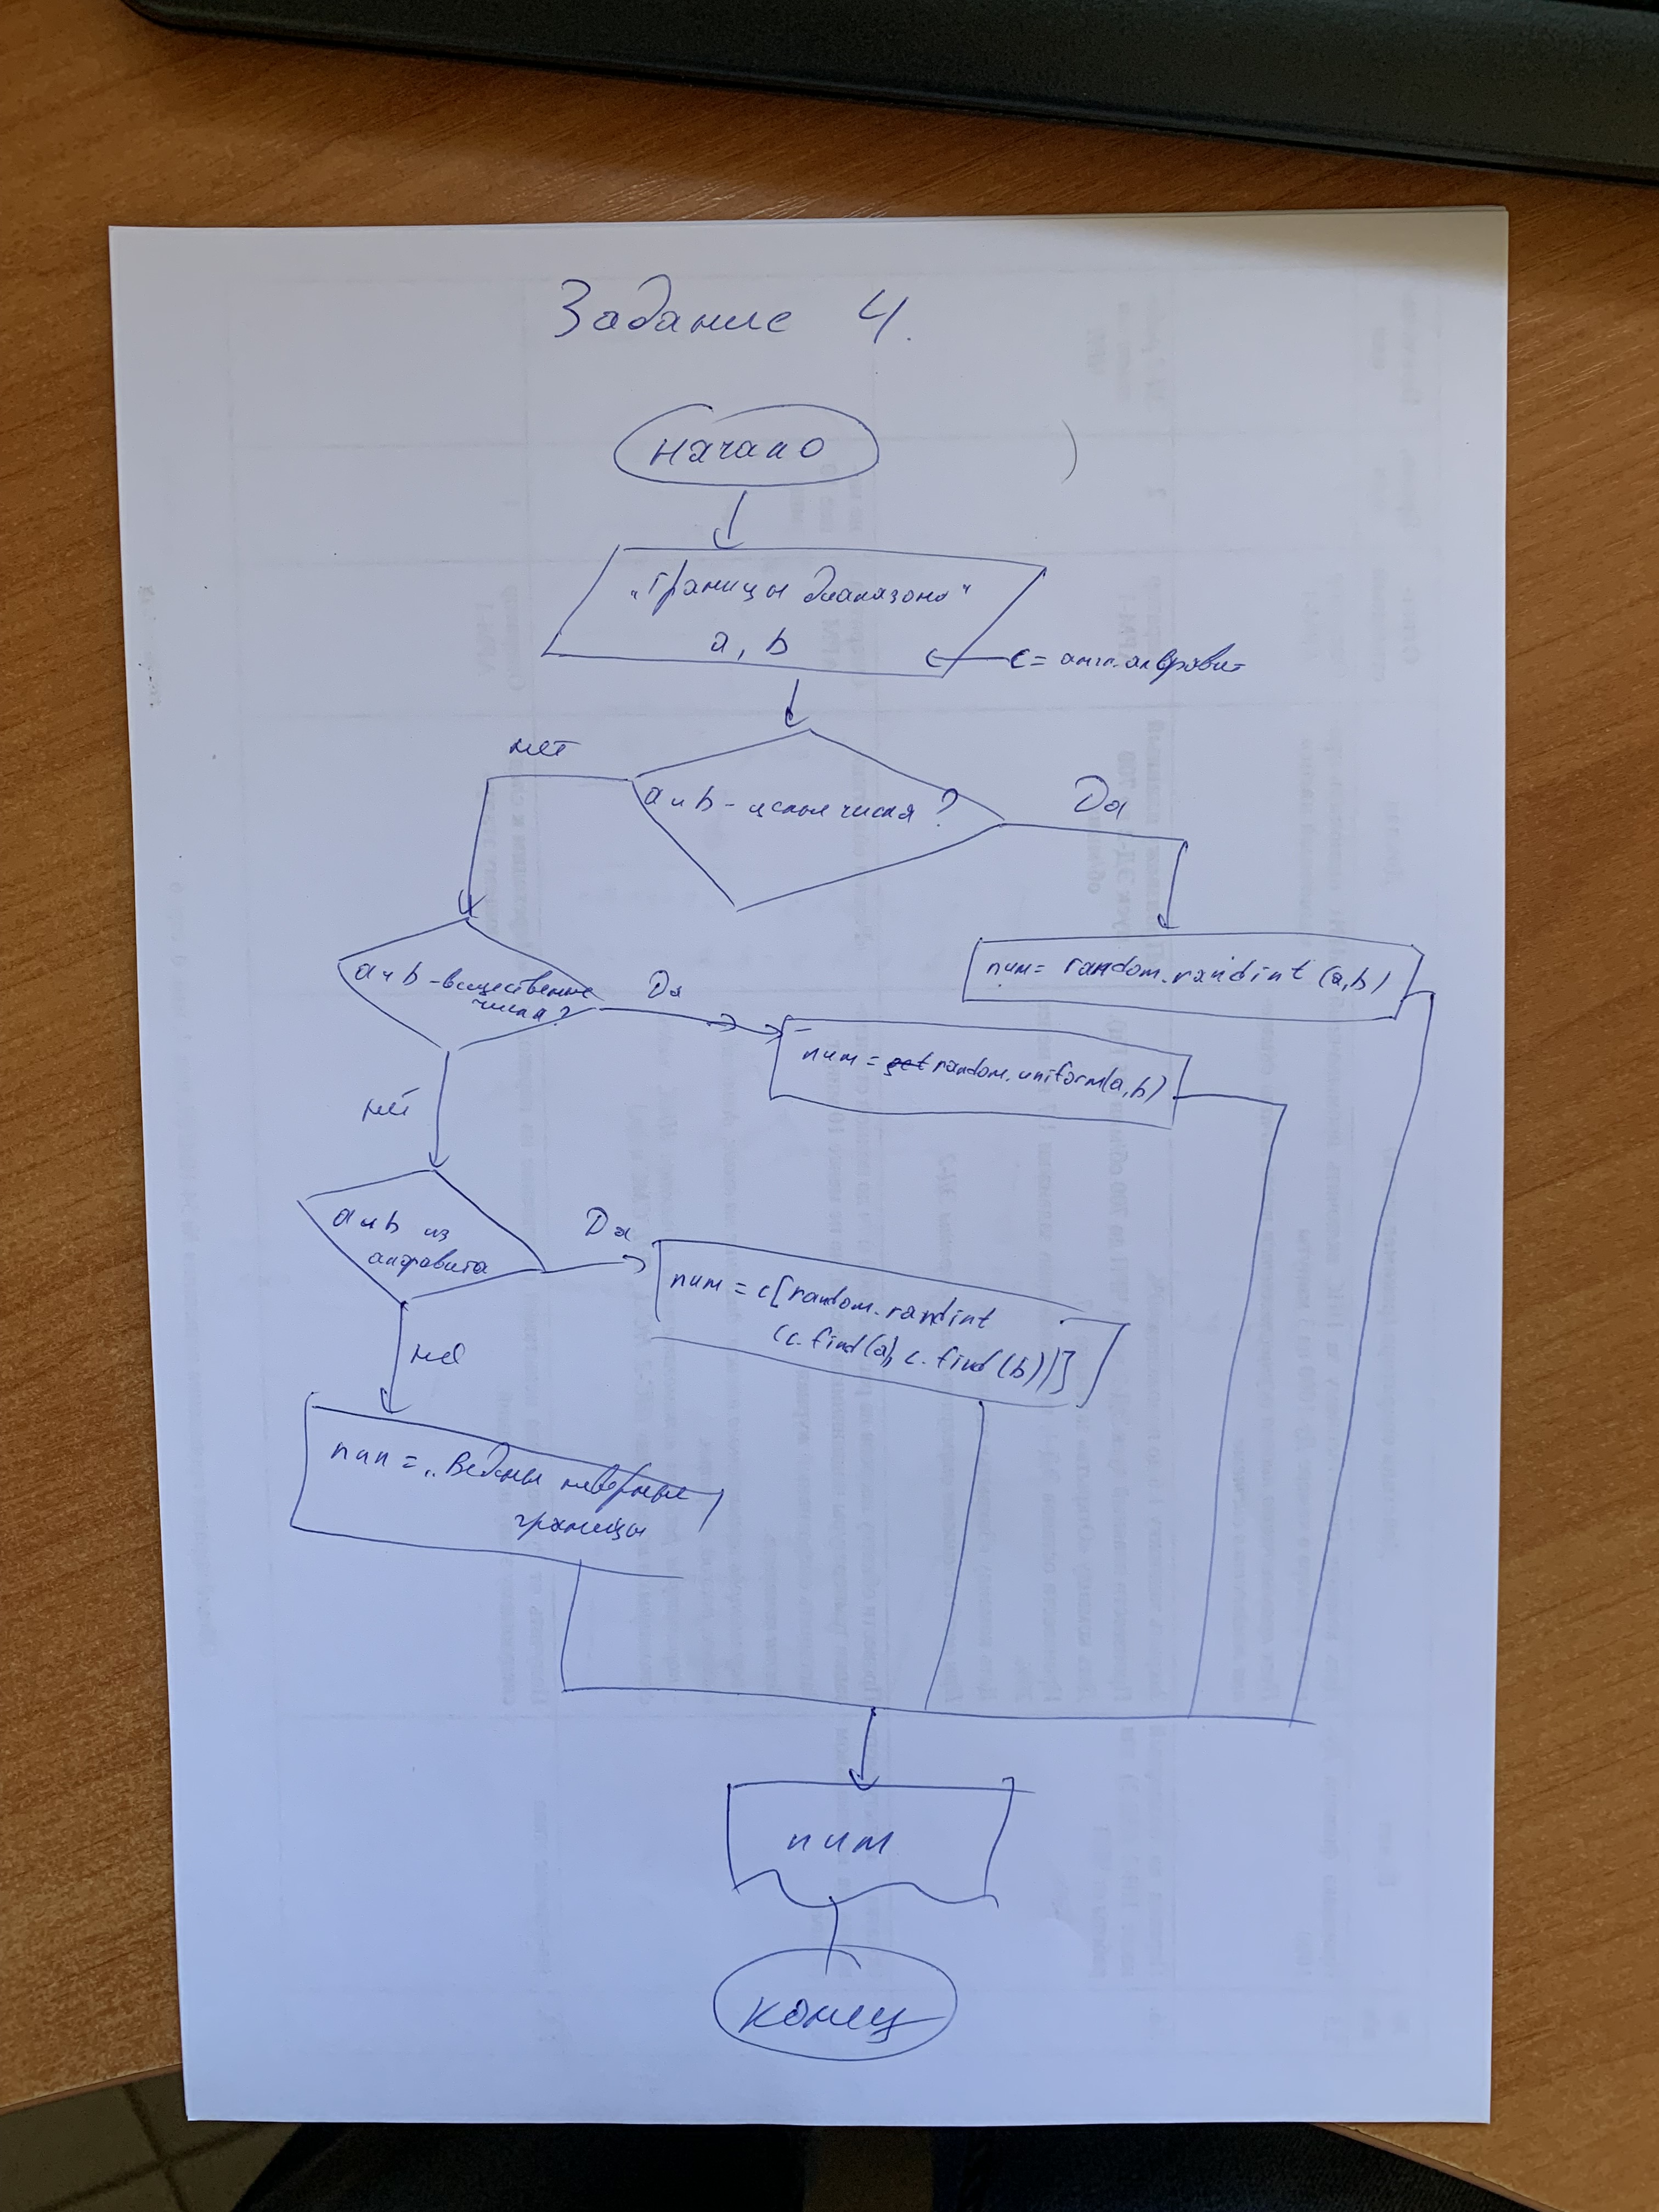 Задание 4.
начало
„Границы диапазона"
a, b
c = англ. алфавит
нет
a и b - целые числа ?
Да
a и b - вещественные
числа ?
Да
num = random.randint (a,b)
num = random.uniform(a,b)
нет
a и b из
алфавита
Да
num = c[random.randint
(c.find(a), c.find(b))]
нет
num = „Ведены неверные
границы
num
конец